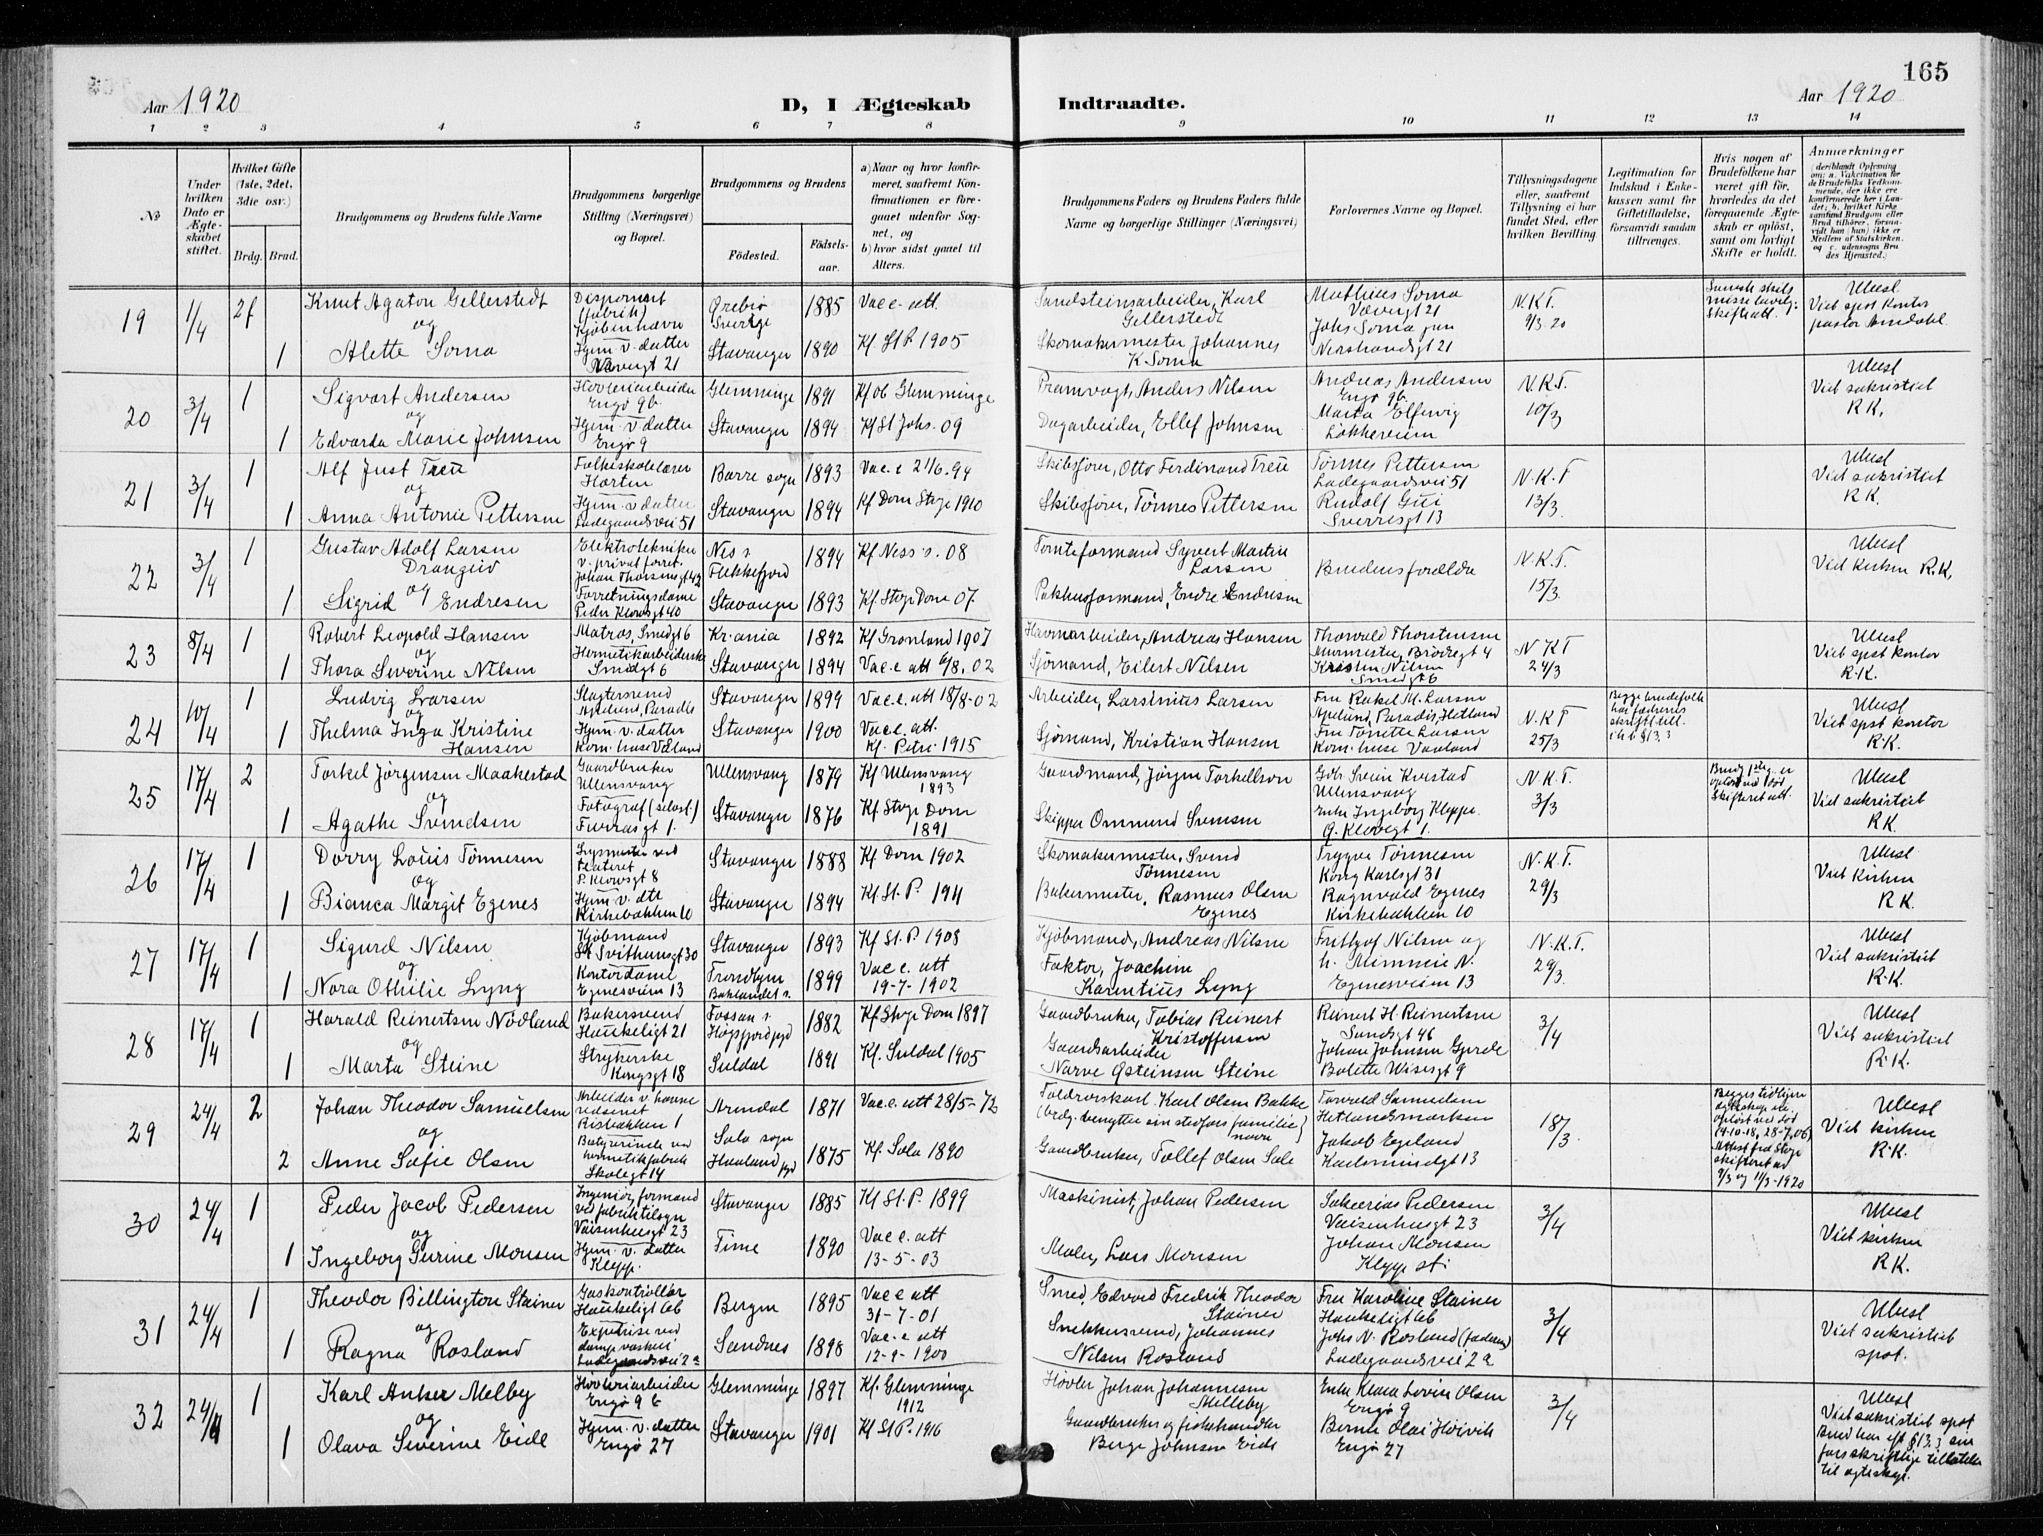 165
Aar 1920
D, I Ægteskab Indtraadte.
Aar 1920
1 2 3 4 5 6 7 8 9 10 11 12 13 14
No
Under hvilken Dato er Ægteskabet stiftet.
Hvilket Gifte (1ste, 2det, 3die osv.)
Brdg. Brud.
Brudgommens og Brudens fulde Navne
Brudgommens borgerlige Stilling (Næringsvei) og Bopæl.
Brudgommens og Brudens
Fødested.
Fødselsaar.
a) Naar og hvor konfirmeret, saafremt Konfirmationen er foregaaet udenfor Sognet, og
b) hvor sidst gaaet til Alters.
Brudgommens Faders og Brudens Faders fulde Navne og borgerlige Stillinger (Næringsvei)
Forlovernes Navne og Bopæl.
Tillysningsdagene eller, saafremt Tillysning ei har fundet Sted, efter hvilken Bevilling
Legitimation for Indskud i Enkekassen samt for Giftetilladelse, forsaavidt saadan tiltrænges.
Hvis nogen af Brudefolkene har været gift før, hvorledes da det foregaaende Ægteskab er opløst, samt om lovligt Skifte er holdt.
Anmerkninger
19 1/4 2f Knut Agaton Gellerstedt Disponent (fabrik) Kjøbenhavn Ørebro Sverige 1885 Vac. c. att. Sandsteinsarbeider, Karl Gellerstedt Mathias Soma 21 N.K.T. 9/3.20 Ubesl
og
1 Alette Soma Hjem. v. datter 21 Stavanger 1890 Kf St P. 1905 Skomakermester Johannes K. Soma Johs Soma jun 21 Viet spst. kontor pastor Amdahl.
20 3/4 1 Sigvart Andersen Høvleriarbeider Engø 9b Glemminge 1891 Kf ob Glemminge Pramvogt, Anders Nilsen Andreas Andersen Engø 9b N.K.T. 10/3 Ubesl
og
1 Edvarda Marie Johnsen Hjem. v. datter Engø 9 Stavanger 1894 Kf St Johs. 09 Dagarbeider, Ellef Johnsen Marta Løkkeveien Viet sakristiet R.K.
21 3/4 1 Alf Just Treu Folkeskolelærer Horten Borre sogn 1893 Vac. c 21/6.94 Skibsfører, Otto Ferdinand Treu Tønnes Pettersen Ladegaardsvei 51 N.K.T 13/3. Ubesl
og
1 Anna Antonie Pettersen Hjem. v datter Ladegaardsvei 51 Stavanger 1894 Kf Dom Stvgr 1910 Skibsfører, Tønnes Pettersen Rudolf Sverresgt 13 Viet sakristiet R.K.
22 3/4 1 Gustav Adolf Larsen Drangeid Elektrotekniker v. privat forret. Nes s Flekkefjord 1894 Kf Ness s. 08 Tomteformand Syvert Martin Larsen Brudens forældre N.K.T. 15/3. Ubesl
og
1 Sigrid Endresen Forretningsdame Peder Klowsgt 40 Stavanger 1893 Kf. Stvgr Dom 07. Pakhusformand, Endre Endresen Viet kirken R.K.
23 8/4 1 Robert Leopold Hansen Matros, Smedgt 6 Kr.ania 1892 Kf Grønland 1907 Havnearbeider, Andreas Hansen Thorvald Thorstensen Murmester, Brødregt 4 N K T 24/3 Ubesl
og
1 Thora Severine Nilsen Hermetikarbeiderske Smedgt 6 Stavanger 1894 Vac. c att 6/8. 02 Sjømand, Eilert Nilsen Kristen Nilsen Smedgt 6 Viet spst kontor R.K.
24 10/4 1 Ludvig Larsen Slagtersvend Åpelund, Paradis Stavanger 1899 Vac. c. att 18/8-02 Arbeider, Larsinius Larsen Fru Rakel M. Larsen Åpelund, Paradis, Hetland N.K T 25/3 Begge brudefolk har fædrenes skriftl till. i h t § 13. 3 Ubesl
og
1 Thelma Inga Kristine Hansen Hjem. v. datter Kom. huse Våland Stavanger 1900 Vac c. att. Kf. Petri 1915 Sjømand, Kristian Hansen Fru Tonette Larsen Kom. huse Vaaland Viet spst kontor R.K.
25 17/4 2 Torkel Jørgensen Maakestad Gaardbruker Ullensvang Ullensvang 1879 Kf Ullensvang 1893 Gaardmand, Jørgen Torkellsen Gdb. Svein Kvestad Ullensvang N.K.T. 3/3 Ubesl
og
1 Agathe Svendsen Fotograf (selvst.) Stavanger 1876 Kf Stvgr Dom 1891 Skipper Ommund Svensen Enke Ingeborg Kleppe P. Klowsgt 1. Viet sakristiet R K.
26 17/4 1 Dorry Louis Tønnesen Lysmester ved teatret P. Klowsgt 8 Stavanger 1888 Kf Dom 1902 Skomakermester, Svend Tønnesen Trygve Tønnesen Kong Karlsgt 31 N.K.T. 29/3 Ubesl
og
1 Bianca Margit Egenes Hjem v. dtr Kirkebakken 10 Stavanger 1894 Kf St. P. 1911 Bakermester, Rasmus Olsen Egenes Ragnvald Egenes Kirkebakken 10 Viet kirken R K.
27 17/4 1 Sigurd Nilsen Kjøbmand St Svithunsgt 30 Stavanger 1893 Kf St. P. 1908 Kjøbmand, Andreas Nilsen Fritjof Nilsen og N.K.T. 29/3. Ubesl
og
1 Nora Othilie Lyng Kontordame Egenesveien 13 Trondhjem Baklandet s. 1899 Vac c. att 19-7-1902 Faktor, Joachim Karentius Lyng N. Egenesveien 13 Viet sakristiet R.K.
28 17/4 1 Harald Reinertsen Nødland Bakersvend Haukeligt 21 Fossan s Høgsfjord pgd 1882 Kf Stvgr Dom 1897 Gaardbruker, Tobias Reinert Kristoffersen Reinert H. Reinertsen Sandsgt 46 3/4 Ubesl
og
1 Marta Steine Strykerske Kongsgt 18 Suldal 1891 Kf. Suldal 1905 Gaardsarbeider Narve Østeinsen Steine Johan Johnsen Gjerde Bolette Wiesegt 9 Viet sakristiet R.K.
29 24/4 2 Johan Theodor Samuelsen Arbeider v. havnevæsenet Risbakken 1 Arendal 1871 Vac. c. att 28/5-72 Toldrorskarl Karl Olsen Bakke (brdg. benytter sin stedfars familienavn) Torvald Samuelsen Hetlandsmarken 18/3. Begges tidligere ægteskap er opløst ved død (4-10-18, 28-7.06) Attest fra Stvgr skifteret av 9/3 og 11/3-1920 Ubesl
og
2 Anne Sofie Olsen ved hermetikfabrik Skolegt 14 Sola sogn Haaland pgd 1875 Kf. Sola 1890 Gaardbruker, Tollef Olsen Sole Jakob Egeland Karlsmindegt 13 Viet kirken R.K.
30 24/4 1 Peder Jacob Pedersen Ingeniør, formand ved fabriktilsyn Vaisenhusgt 23 Stavanger 1885 Kf St. P. 1899 Maskinist, Johan Pedersen Sakarias Pedersen Vaisenhusgt 23 3/4 Ubesl
og
1 Ingeborg Gurine Monsen Hjem. v. datter Klepp. Time 1890 Vac c. att 13-5-03 Maler, Lars Monsen Johan Monsen Klepp st. Viet kirken R K.
31 24/4 1 Theodor Billington Stainer Gaskontrollør Haukeligt 66 Bergen 1895 Vac c att 31-7-01 Smed, Edvord Fredrik Theodor Stainer Fru Karoline Stainer Haukeligt 66 3/4 Ubesl
og
1 Ragna Rosland Expetrise ved dampvasken Ladegaardsvei 2a Sandnes 1898 Vac. c att 12-9-1900 Snekkersvend, Johannes Nilsen Rosland Johs N. Rosland (faderen) Ladegaardsvei 2a Viet sakristiet spst.
32 24/4 1 Karl Anker Melby Høvleriarbeider Engø 9 b Glemminge 1897 Kf. Glemminge 1912 Høvler Johan Johannesen Melleby Enke Klara Lovise Olsen Engø 9 3/4 Ubesl
og
1 Olava Severine Eide Hjem. v. datter Engø 27 Stavanger 1901 Kf St P. 1916 Gaardbruker og fiskehandler Berge Johnsen Eide Bernt Olai Høivik Engø 27 Viet sakristiet spst Brud har eft § 13.3 sin fars skriftlige tilladelse til egteskap.